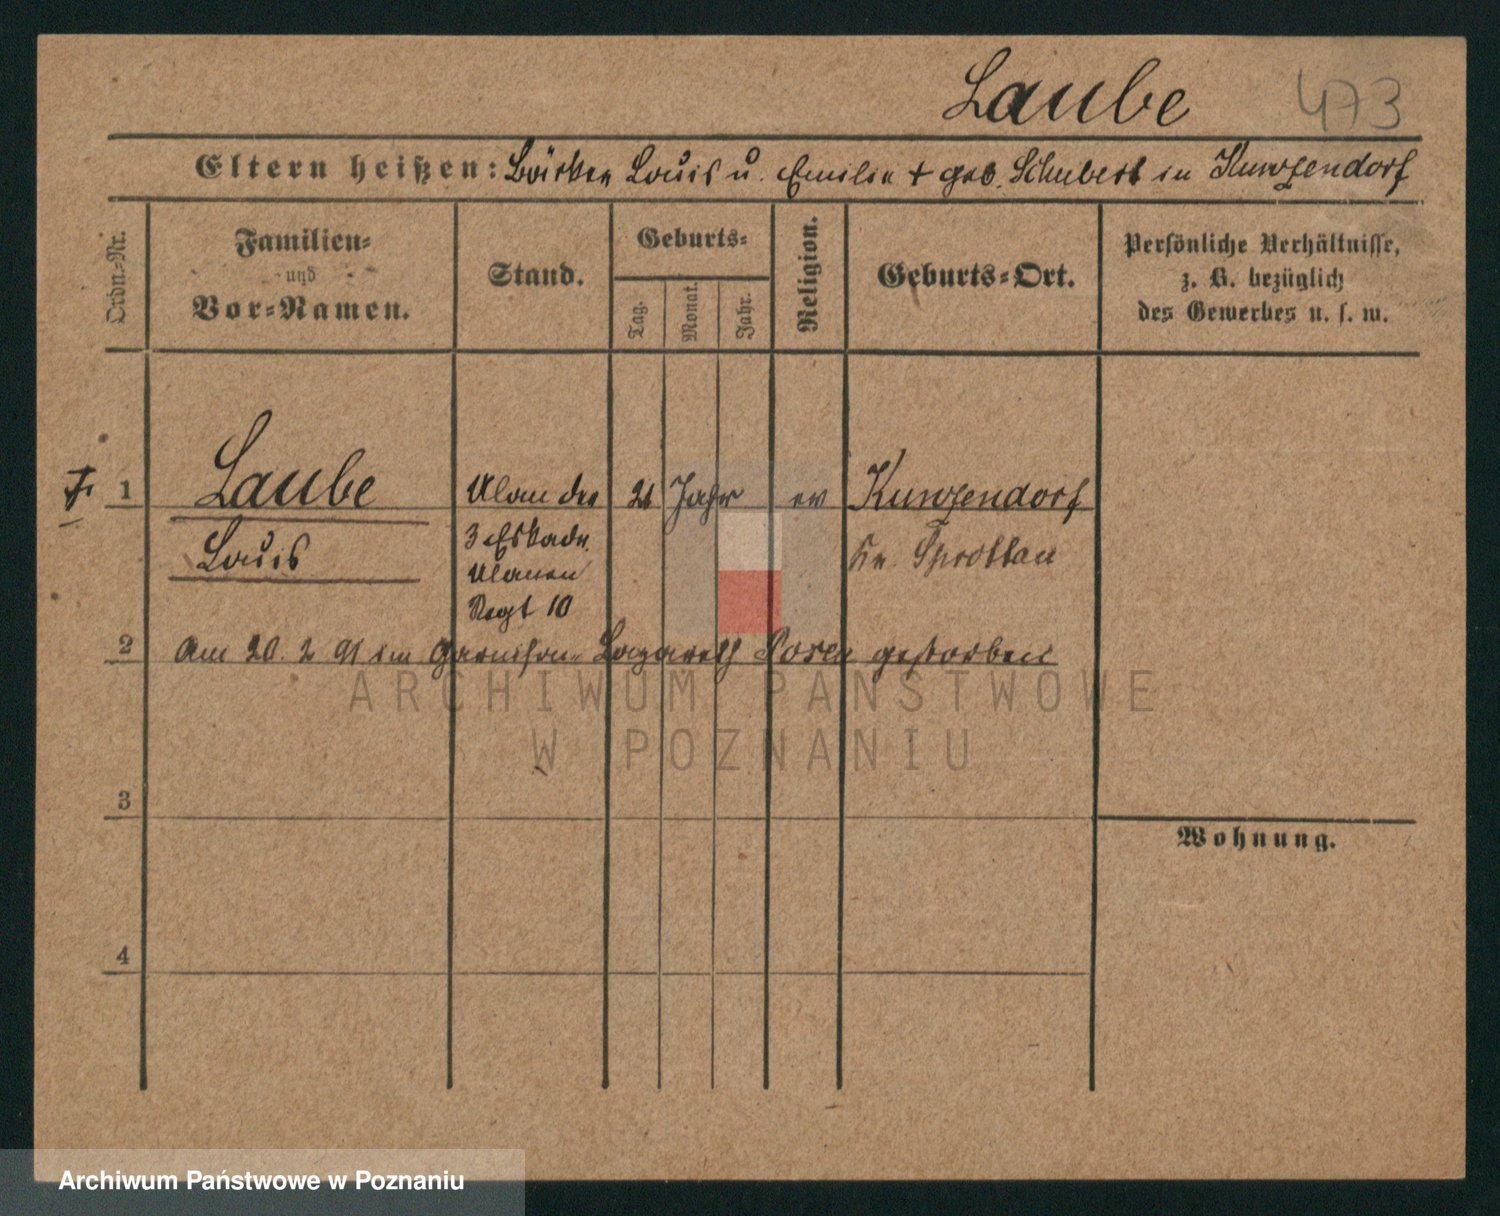 Laube 473
Eltern heißen: Bäcker Louis u. Emilie + geb. Schubert in Kunzendorf
Ordn.-Nr.
Familien-
und
Vor-Namen.
Stand.
Geburts-
Tag.
Monat.
Jahr.
Religion.
Geburts-Ort.
Persönliche Verhältnisse,
z. B. bezüglich
des Gewerbes u. s. w.
1 Laube Ulan der 21 Jahr ev Kunzendorf
Louis 3 Eskadr. Kr. Sprottau
Ulanen
Regt 10
2 Am 20. 2 91 im Garnison-Lazareth Posen gestorben
ARCHIWUM PAŃSTWOWE
W POZNANIU
3
Wohnung.
4
Archiwum Państwowe w Poznaniu